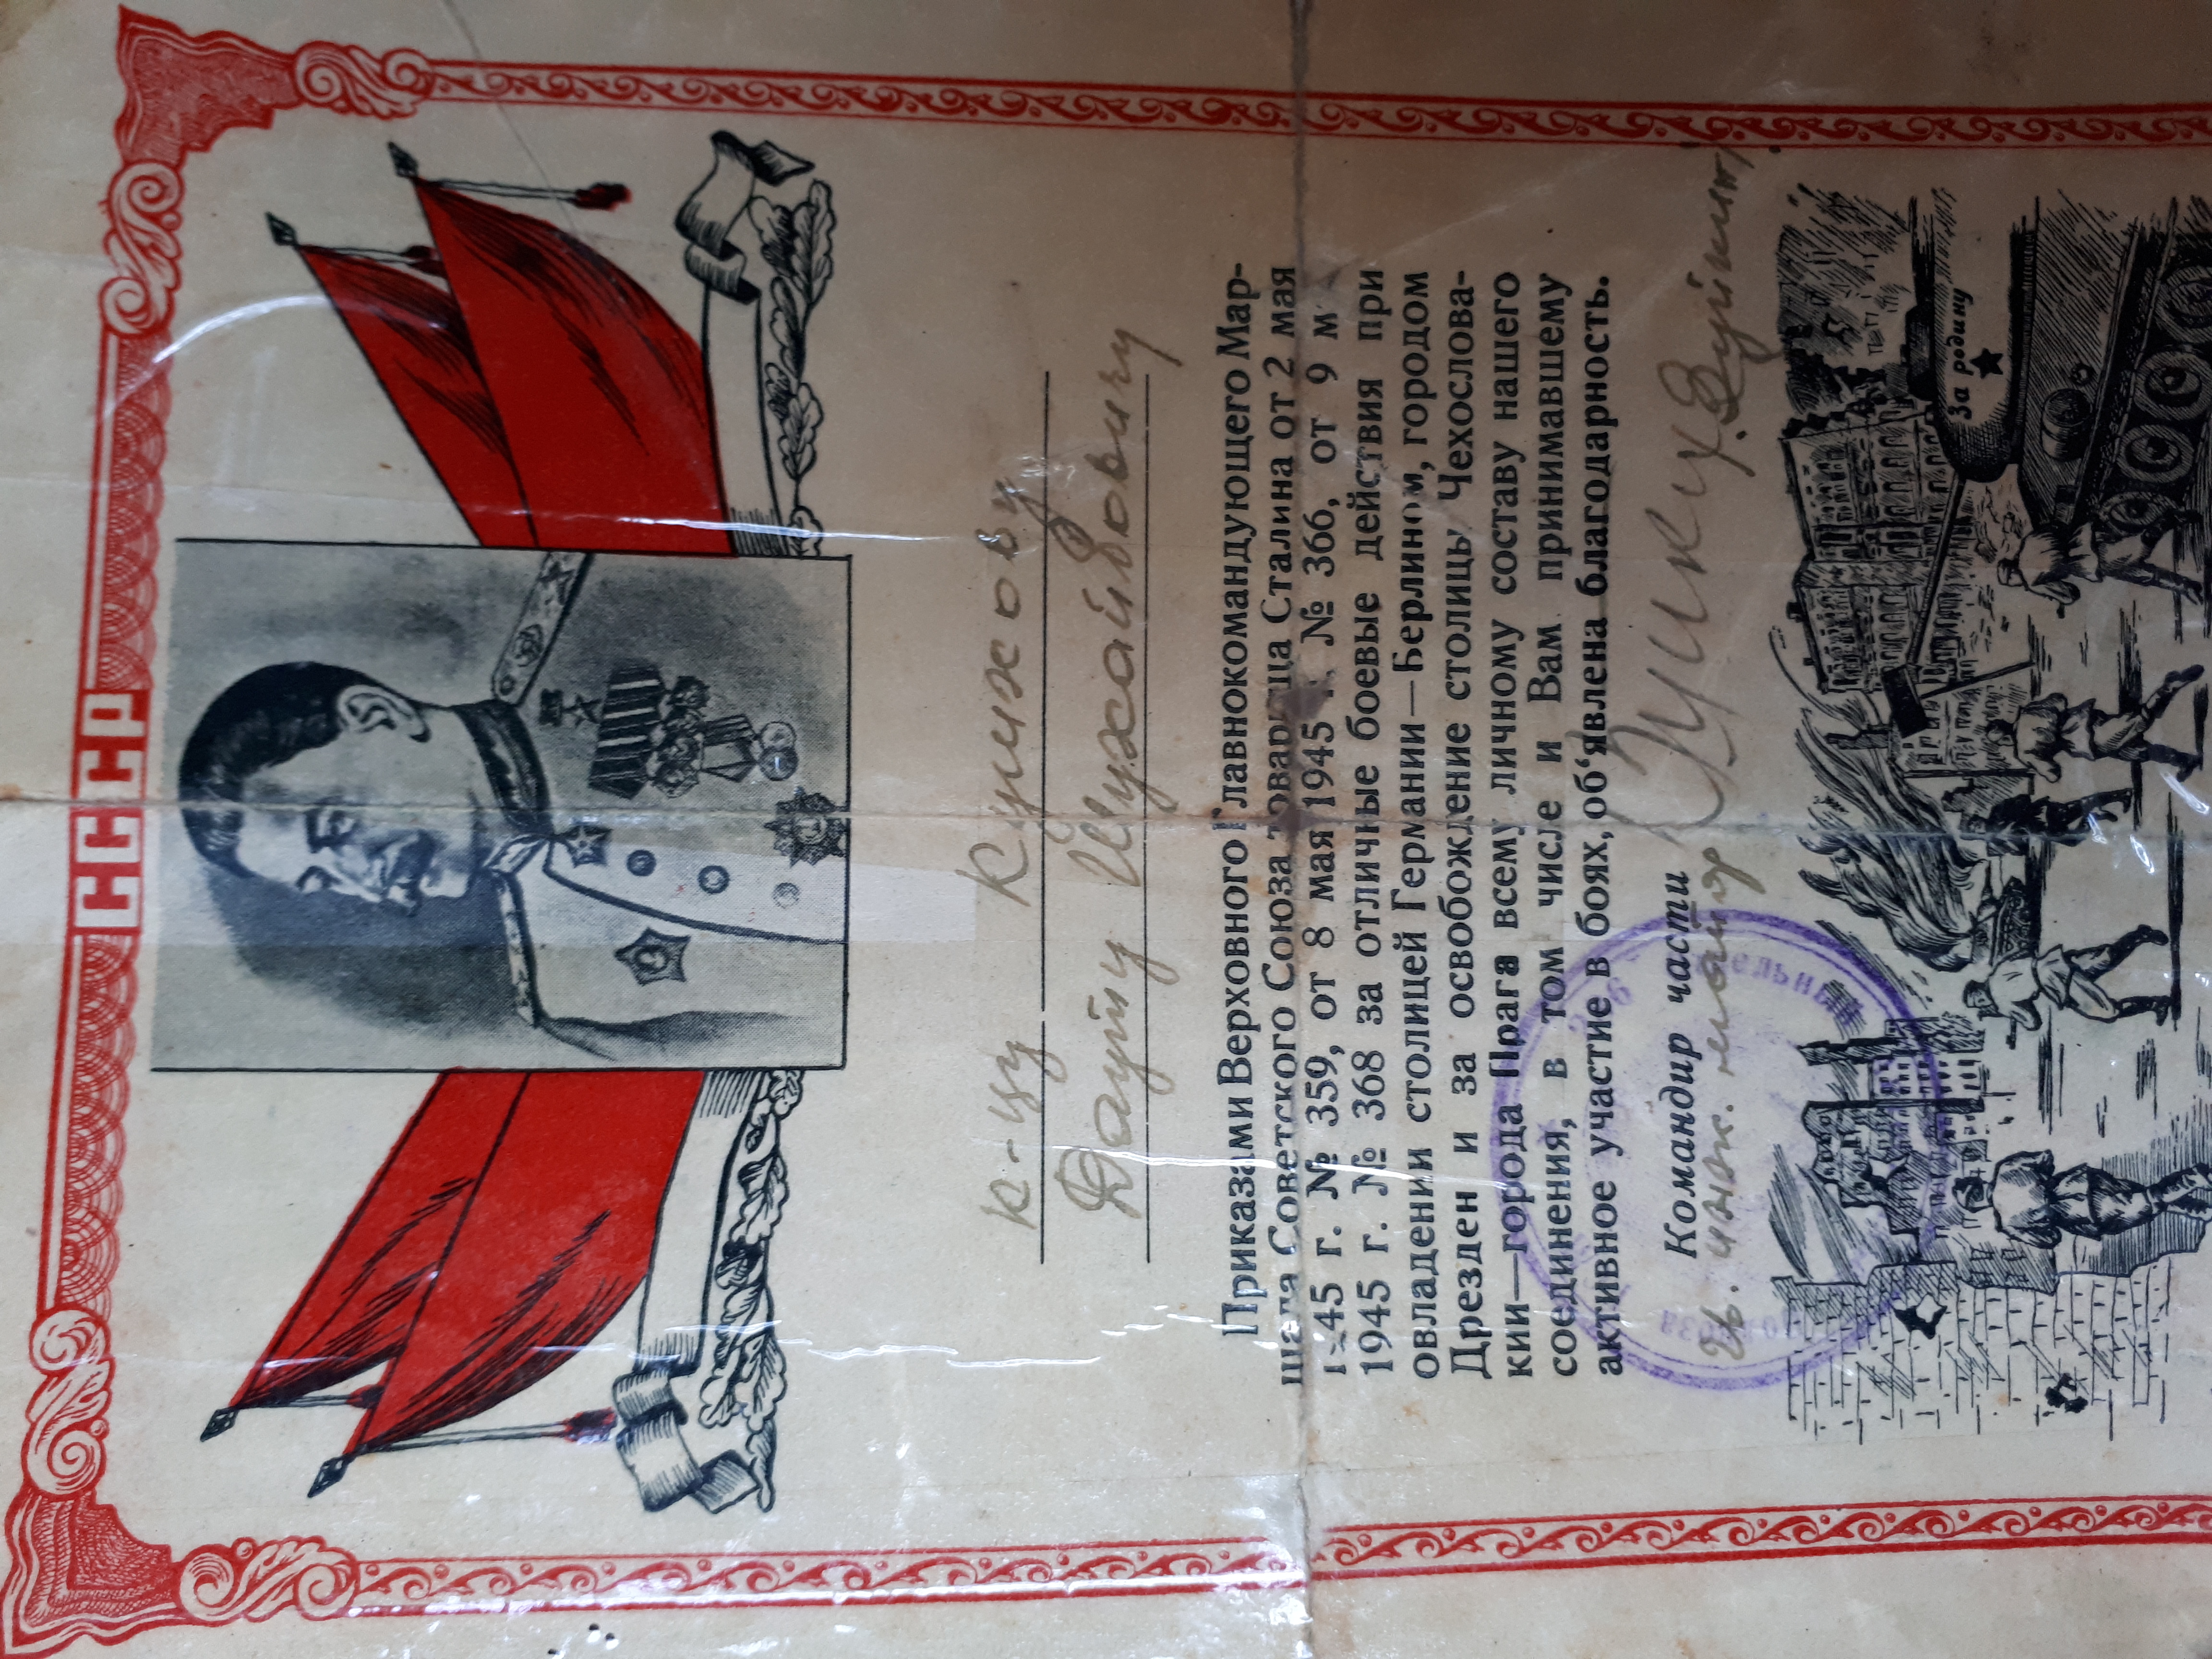 СССР
к-цу Кушхову
Дауту Шухайбовичу
Приказами Верховного Главнокомандующего Мар-
шала Советского Союза товарища Сталина от 2 мая
1945 г. № 359, от 8 мая 1945 г. № 366, от 9 м
1945 г. № 368 за отличные боевые действия при
овладении столицей Германии—Берлином, городом
Дрезден и за освобождение столицы Чехослова-
кии—города Прага всему личному составу нашего
соединения, в том числе и Вам принимавшему
активное участие в боях, об‘явлена благодарность.
Командир части
инж. майор
За родину